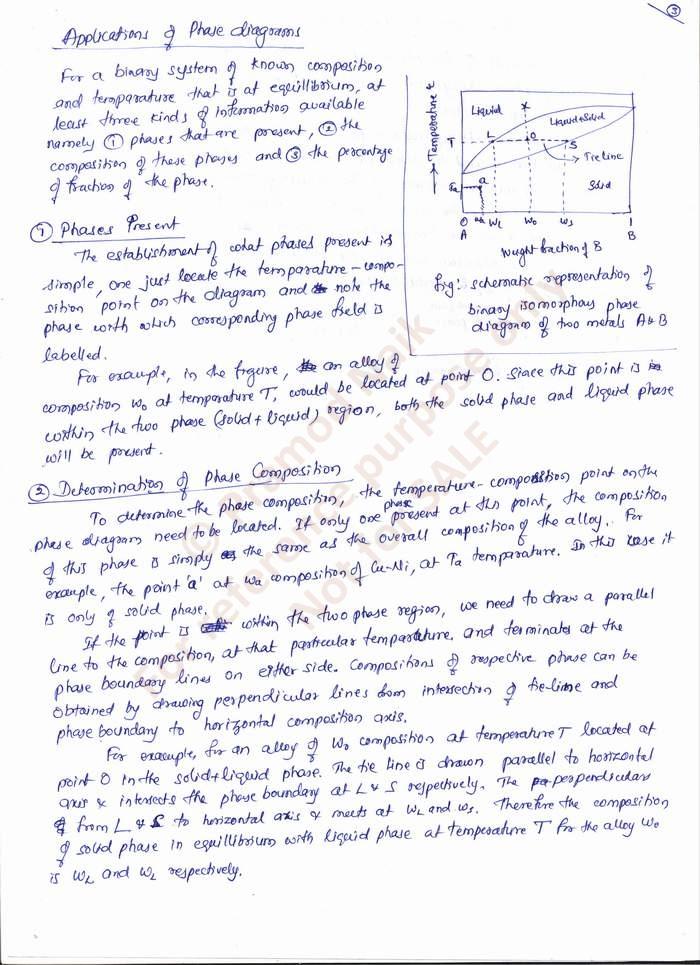 3
Applications of Phase diagrams
For a binary system of known composition
and temparature that is at equillibrium, at
least three kinds of information available
namely ① phases that are present, ② the
composition of these phases and ③ the percentage
of fraction of the phase.
① Phases Present
The establishment of what phases present is
simple, one just locate the temparature-compo-
sition point on the diagram and note the
phase with which corresponding phase field is
labelled.
For example, in the figure, an alloy of
composition W0 at temparature T, would be located at point O. Since this point is
within the two phase (solid + liquid) region, both the solid phase and liquid phase
will be present.
Temperature t
Liquid
x
Liquid+Solid
T
L
O
S
Tie line
Ta
a
Solid
0
Wa
WL
W0
Ws
1
A
B
Weight fraction of B
Fig: schematic representation of
binary isomorphous phase
diagram of two metals A & B
② Determination of Phase Composition
To determine the phase composition, the temperature-composition point on the
phase diagram need to be located. If only one phase present at this point, the composition
of this phase is simply the same as the overall composition of the alloy. For
example, the point 'a' at Wa composition of Cu-Ni, at Ta temparature. In this case it
is only of solid phase.
If the point is within the two phase region, we need to draw a parallel
line to the composition, at that particular temparature. and terminates at the
phase boundary lines on either side. Compositions of respective phase can be
obtained by drawing perpendicular lines from intersection of tie-line and
phase boundary to horizontal composition axis.
For example, for an alloy of W0 composition at temperature T located at
point O in the solid+liquid phase. The tie line is drawn parallel to horizontal
axis & intersects the phase boundary at L & S respectively. The perpendiculars
from L & S to horizontal axis & meets at WL and Ws. Therefore the composition
of solid phase in equillibrium with liquid phase at temperature T for the alloy W0
is WL and WL respectively.
For reference purpose only
Not for SALE